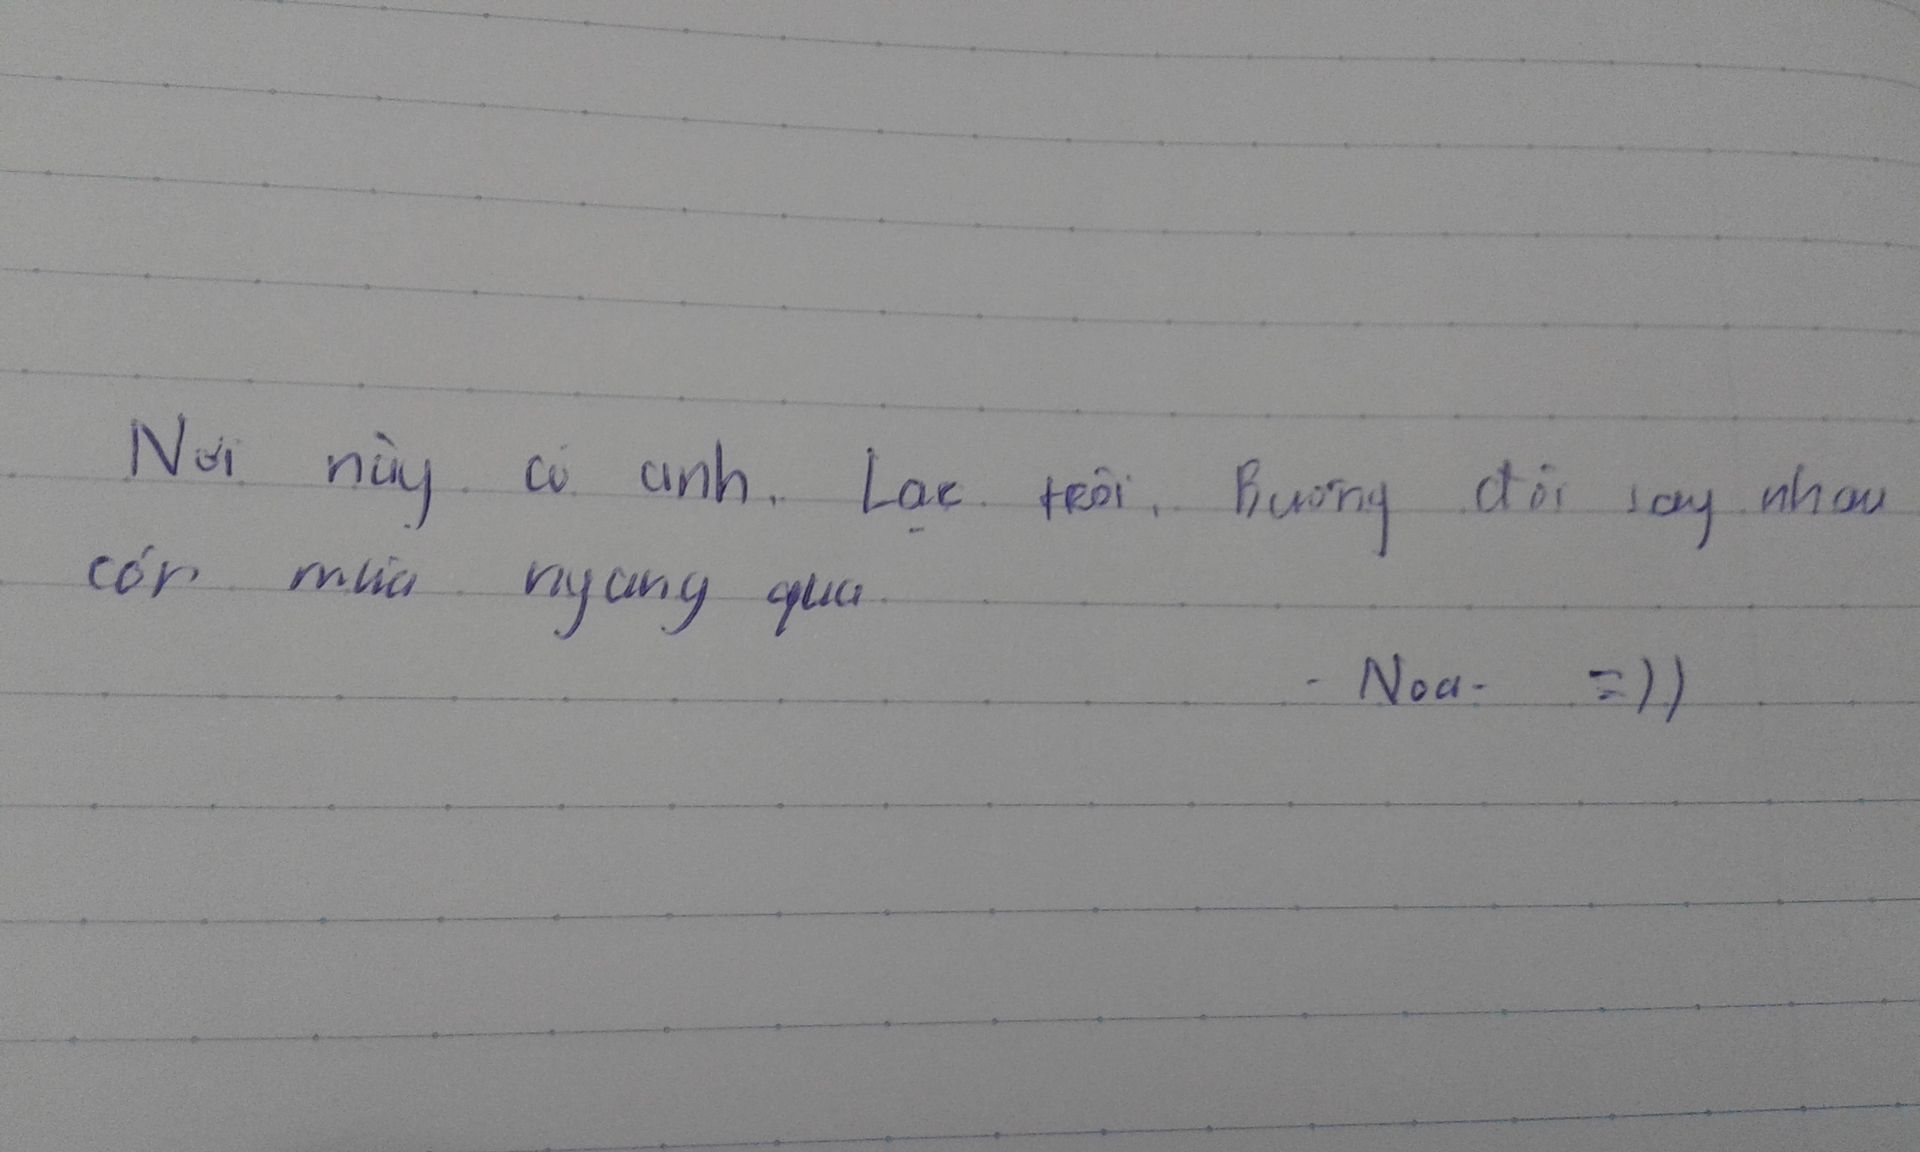 Nơi này có anh. Lạc trôi. Buông đôi tay nhau
cơn mưa ngang qua
- Noa - =))